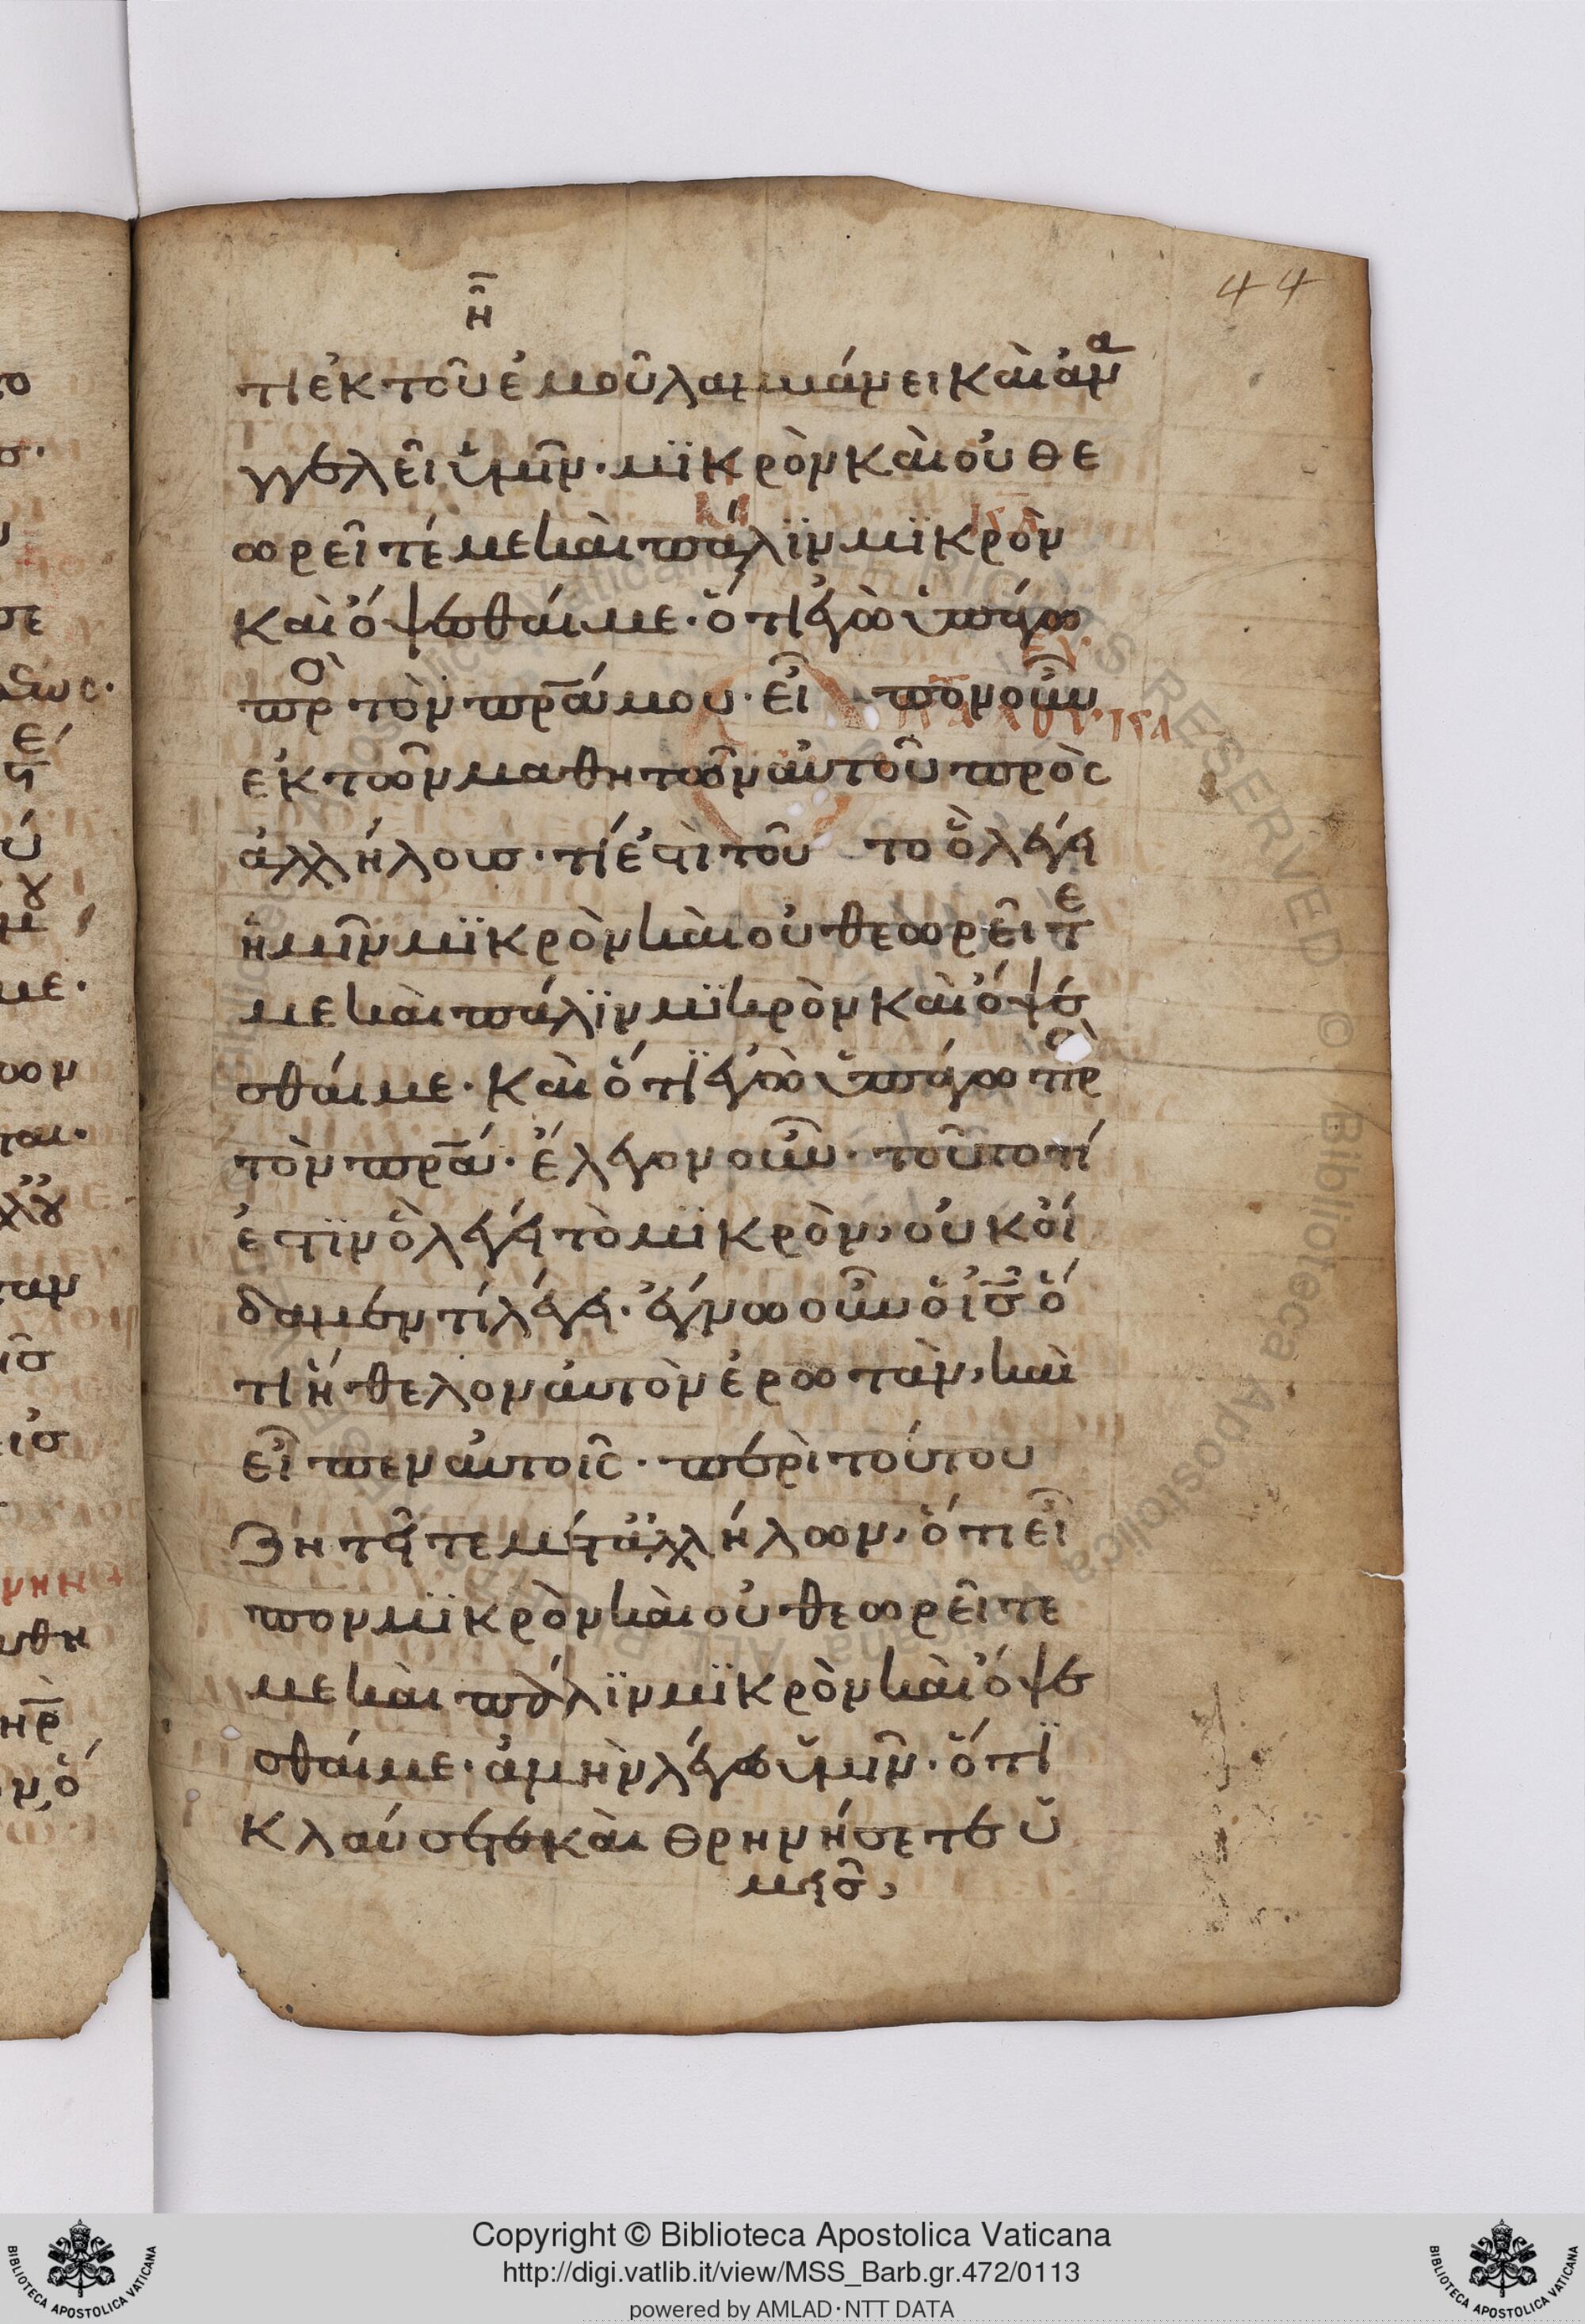 44
η̄
τι ἐκ τοῦ ἐμοῦ λαμβάνει καὶ ἀν̅α̅
γγελεῖ ὑμῖν· μϊκρὸν καὶ οὐ θε
ωρεῖτέ με καὶ πάλϊν μϊκρὸν
καὶ ὄψεσθαί με· ὅτι ἐγὼ ὑπάγω
πρ̀ο τὸν πρ̅α μου· εἶπον οὖν
ἐκ τῶν μαθητῶν αὐτοῦ πρὸς
ἀλλήλους· τί ἐστὶ τοῦτο ὃ λέγει
ἡμῖν μϊκρὸν καὶ οὐ θεωρεῖτε
με καὶ πάλϊν μϊκρὸν καὶ ὄψε
σθαί με· καὶ ὅτϊ ἐγὼ ὑπάγω πρὸ
τὸν πρ̅α· ἔλεγον οὖν· τοῦτο τί
ἐστϊν ὃ λέγει τὸ μϊκρὸν, οὐκ οἴ
δαμεν τί λέγει· ἔγνω οὖν ὁ ἰς̅ ὅ
τι ἤθελον αὐτὸν ἐρωτὰν, καὶ
εἶπεν αὐτοῖς· περὶ τούτου
ζητεῖτε μετ' ἀλλήλων, ὅτι εἶ
πον μϊκρὸν καὶ οὐ θεωρεῖτε
με καὶ πάλϊν μϊκρὸν καὶ ὄψε
σθαί με· ἀμὴν λέγω ὑμῖν· ὅτϊ
κλαύσετε καὶ θρηνήσετε ὑ
μεῖς,
Copyright © Biblioteca Apostolica Vaticana
http://digi.vatlib.it/view/MSS_Barb.gr.472/0113
powered by AMLAD·NTT DATA
BIBLIOTECA APOSTOLICA VATICANA
BIBLIOTECA APOSTOLICA VATICANA